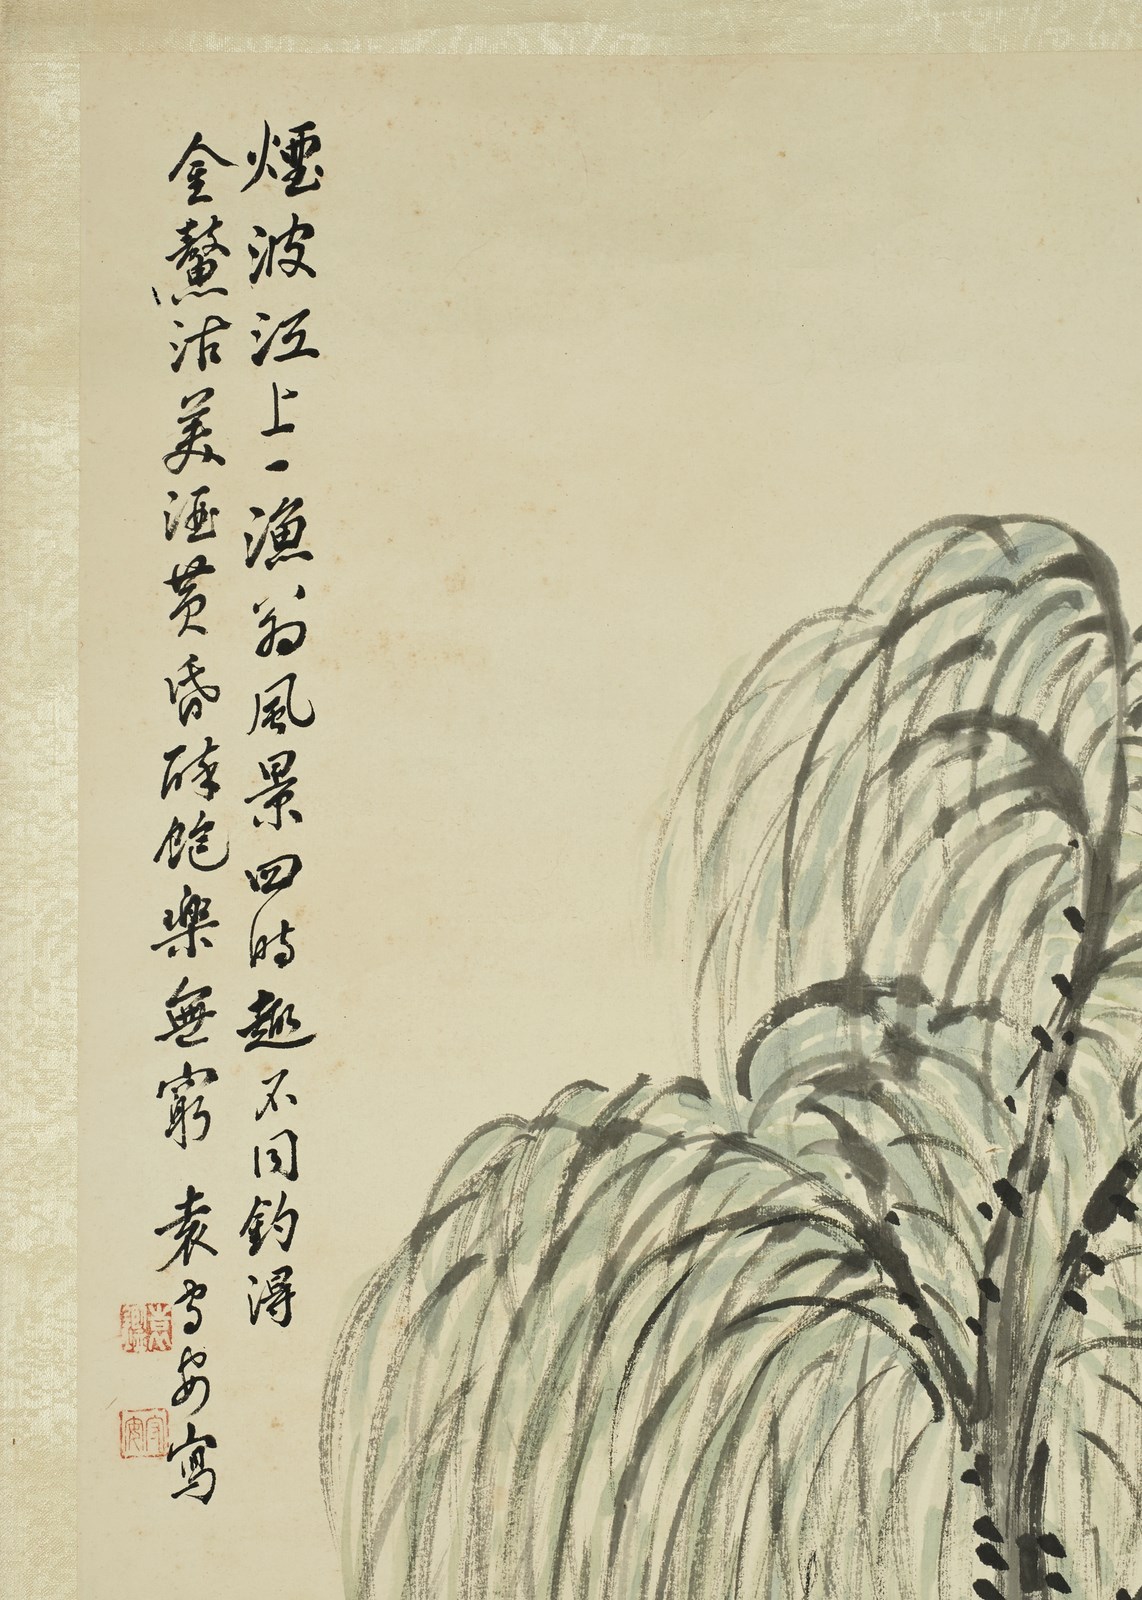 煙波江上一漁翁風景四時趣不同釣得
金鰲沽美酒黃昏醉飽樂無窮 袁守安寫